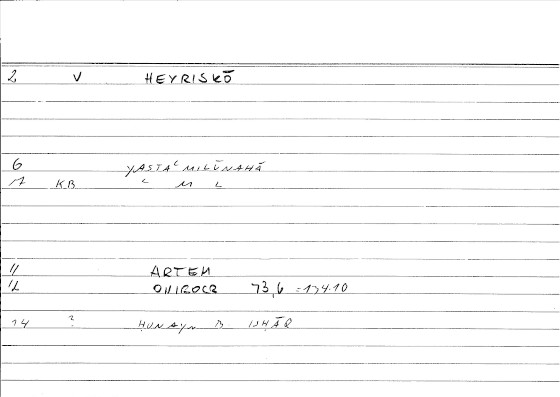 2 V HEYRISKŌ
6 YASTAʿMILŪNAHĀ
KB ʿ M L
11 ARTEM
12 ONIROCR 73,6 =134.10
14 ? ḤUNAYN B ISḤĀQ